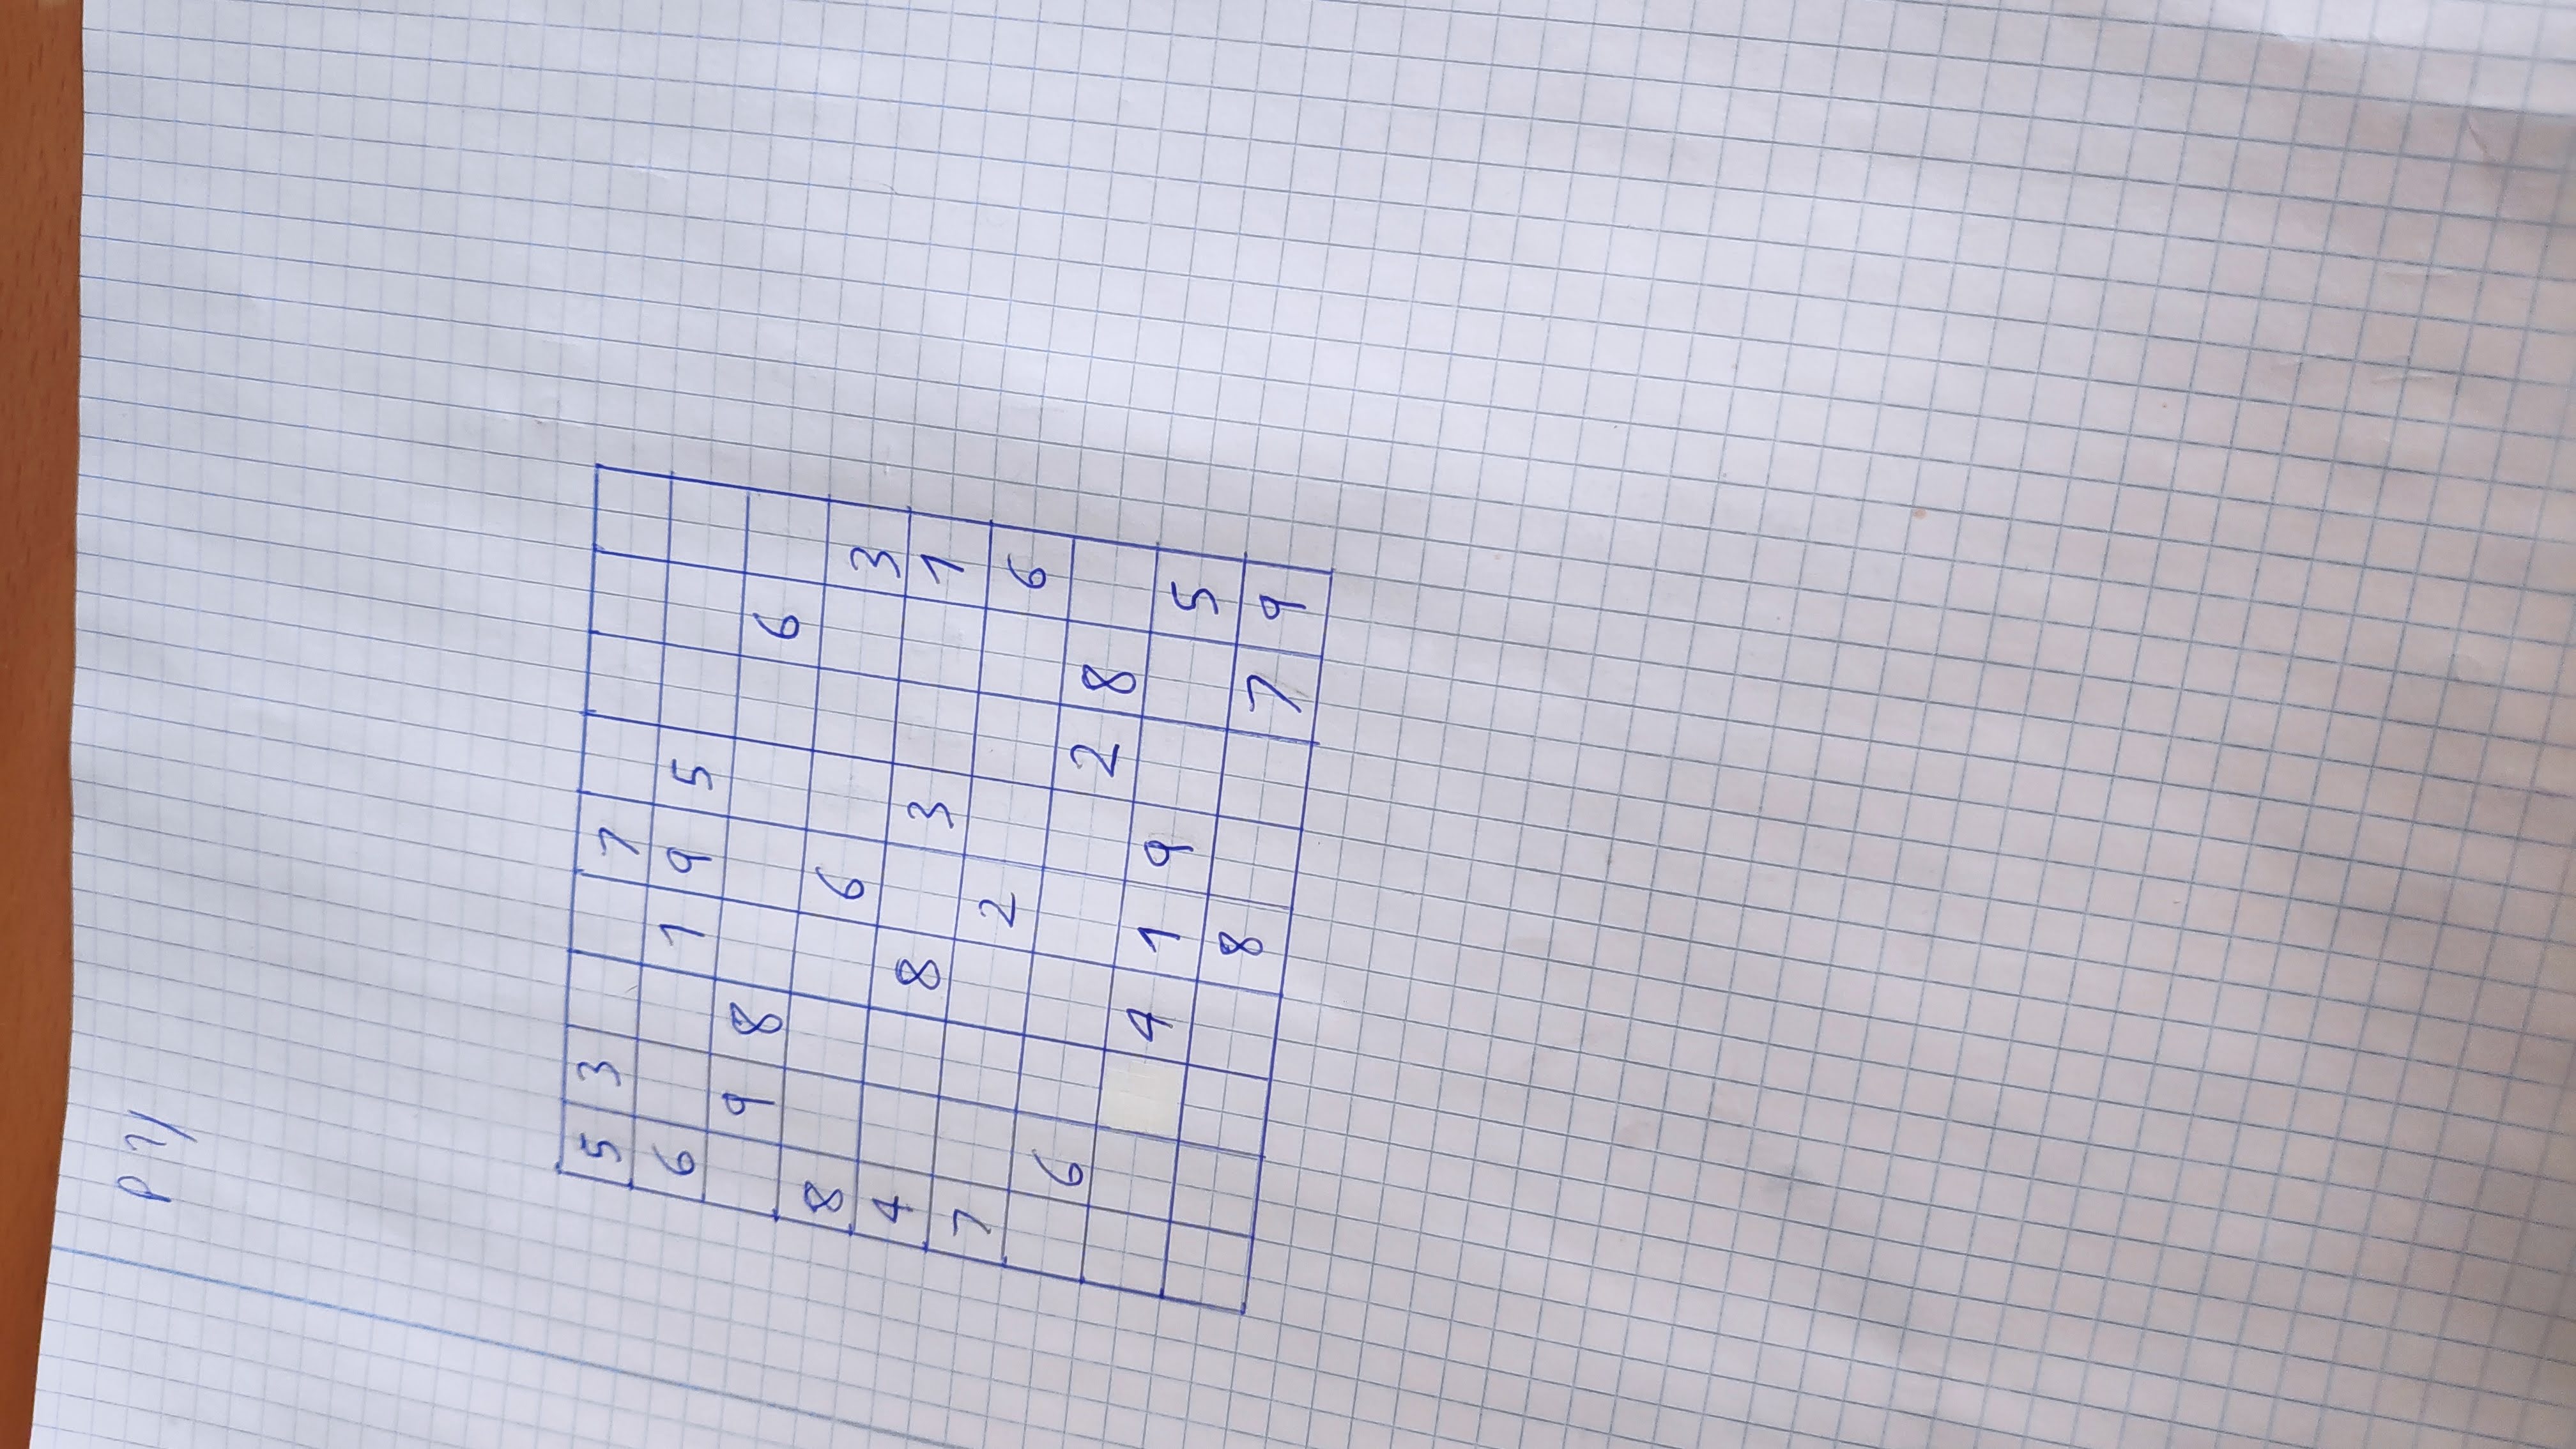 P 1/
5 3 7
6 1 9 5
9 8 6
8 6 3
4 8 3 1
7 2 6
6 2 8
4 1 9 5
8 7 9